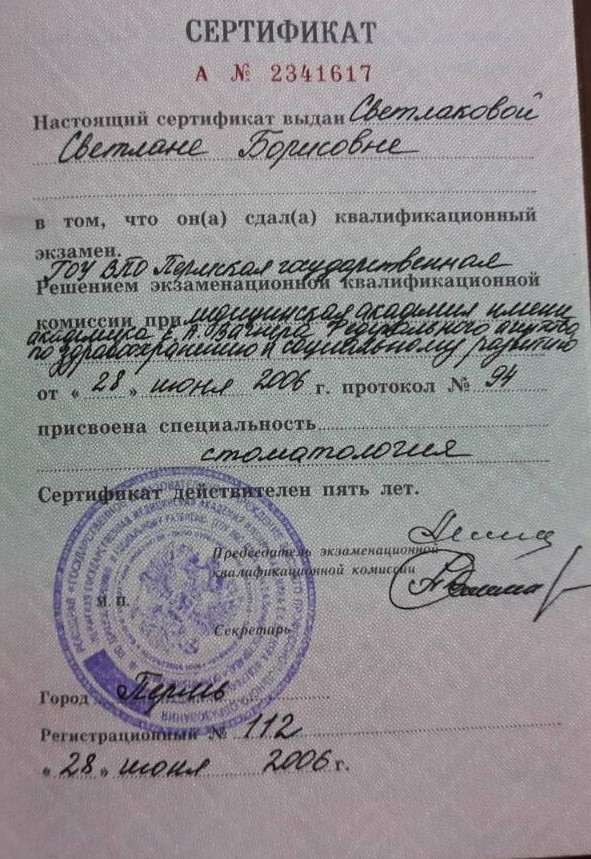 СЕРТИФИКАТ
А № 2341617
Настоящий сертификат выдан Светлаковой
Светлане Борисовне
в том, что он(а) сдал(а) квалификационный
экзамен.
ГОУ ВПО Пермская государственная
Решением экзаменационной квалификационной
комиссии при медицинская академия имени
академика Е. А. Вагнера Федерального агентства
по здравоохранению и социальному развитию
от « 28 » июня 2006 г. протокол № 94
присвоена специальность
стоматология
Сертификат действителен пять лет.
Председатель экзаменационной
квалификационной комиссии
М. П.
Секретарь
Город Пермь
Регистрационный № 112
« 28 » июня 2006 г.